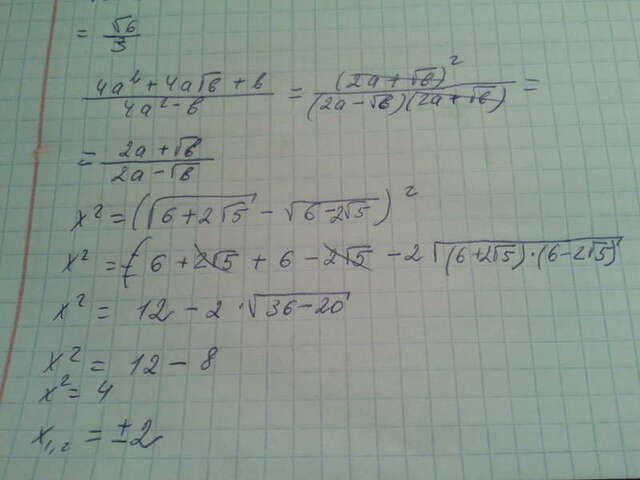 = √6/3
(4a² + 4a√в + в)/(4a² - в) = (2a + √в)²/((2a - √в)(2a + √в)) =
= (2a + √в)/(2a - √в)
x² = (√(6 + 2√5) - √(6 - 2√5))²
x² = 6 + 2√5 + 6 - 2√5 - 2√((6 + 2√5)·(6 - 2√5))
x² = 12 - 2·√(36 - 20)
x² = 12 - 8
x² = 4
x₁,₂ = ±2